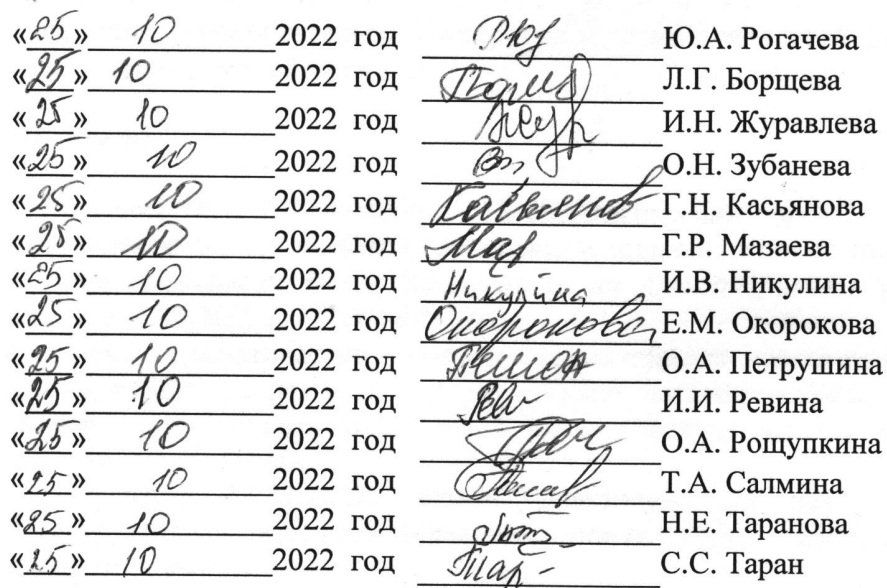 «25» 10 2022 год Ю.А. Рогачева
«25» 10 2022 год Л.Г. Борщева
«25» 10 2022 год И.Н. Журавлева
«25» 10 2022 год О.Н. Зубанева
«25» 10 2022 год Касьянов Г.Н. Касьянова
«25» 10 2022 год Г.Р. Мазаева
«25» 10 2022 год Никулина И.В. Никулина
«25» 10 2022 год Окорокова Е.М. Окорокова
«25» 10 2022 год О.А. Петрушина
«25» 10 2022 год И.И. Ревина
«25» 10 2022 год О.А. Рощупкина
«25» 10 2022 год Т.А. Салмина
«25» 10 2022 год Н.Е. Таранова
«25» 10 2022 год С.С. Таран